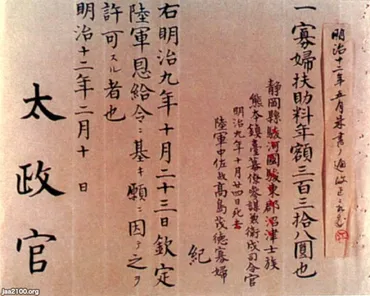 明治十二年五月朱書ノ通改正
一寡婦扶助料年額三百三拾八圓也
静岡縣駿河國駿東郡沼津士族
熊本鎮臺幕僚参謀兼衛戍司令官
明治九年十月廿四日死去
陸軍中佐故高島茂徳寡婦
紀
右明治九年十月二十三日欽定
陸軍恩給令ニ基キ願ニ因テ之ヲ
許可スル者也
明治十二年二月十日
太政官
jaa2100.org